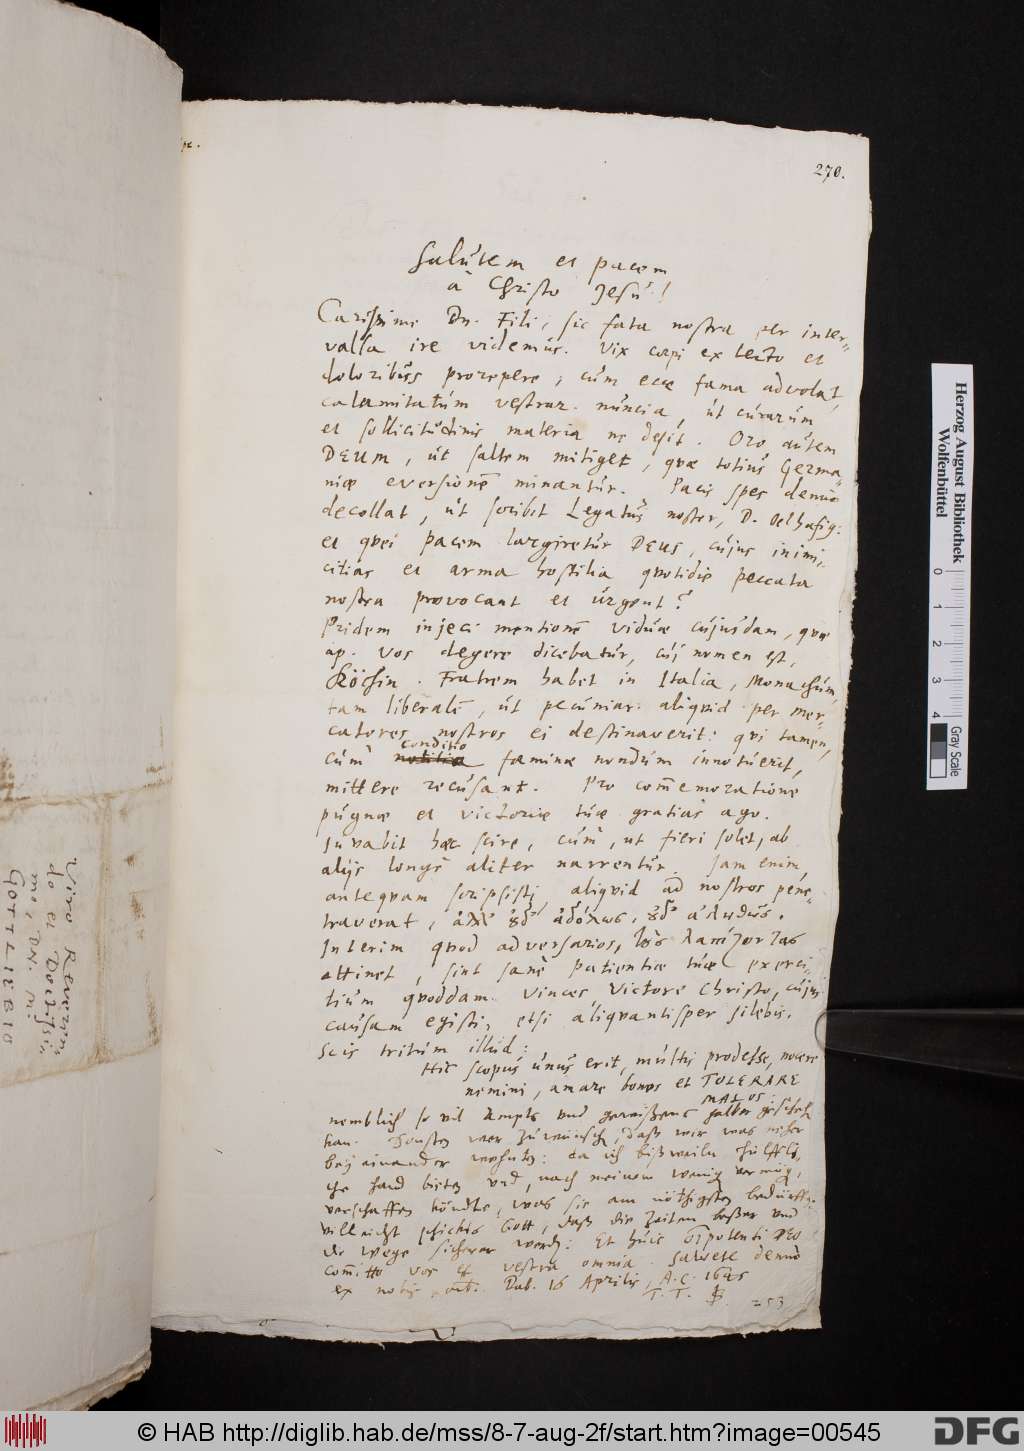 270.
Salutem et pacem
à Christo Jesu!
Carissime Dn. Fili, sic fata nostra per inter-
valla ire videmus. Vix coepi ex lecto et
doloribus prorepere, cùm ecce fama advolat,
calamitatum vestrar. nuncia, ut curarum
et sollicitudinis materia ne desit. Oro autem
DEUM, ut saltem mitiget, quae totius Germa-
niae eversionē minantur. Pacis spes denuò
decollat, ut scribit Legatus noster, D. Oelhafig:
et quei pacem largiretur DEUS, cujus inimi-
citias et arma hostilia quotidiè peccata
nostra provocant et urgent?
Pridem injeci mentionē viduae cujusdam, quae
ap. vos degere dicebatur, cuj nomen est,
Köchin. Fratrem habet in Italia, Monachum
tam liberalē, ut pecuniar. aliquid per mer-
catores nostros ei destinaverit: qui tamen,
conditio
cùm notitia foeminae nondum innotuerit,
mittere recusant. Pro com̄emoratione
pugnae et victoriae tuae gratias ago.
Juvabit haec scire, cùm, ut fieri solet, ab
alijs longè aliter narrentur. Jam enim,
antequam scripsisti, aliquid ad nostros pene-
traverat,
Interim quod adversarios,
attinet, sint sanè patientiae tuae exerci-
tium quoddam. Vinces, Victore Christo, cujus
causam egisti, etsi aliquantisper silebis.
Scis tritum illud:
Hic scopus unus erit, multis prodesse, nocere
nemini, amare bonos et TOLERARE
MALOS:
nemblich so vil Ampts und gewissens halber geschehen
kan. Sonsten wer zu wünschen, daß wir was neher
bey einander
die hand bieten und, nach meinem wenig vermög,
verschaffen köndte, was sie am nöthigsten bedürffen.
villeicht schickts Gott, daß die Zeiten besser und
die Wege sicherer werden: Et huic DEO
com̄itto vos et vestra omnia. Salvete denuò
ex nobis. Dab. 16 Aprilis, A. C. 1645
T. T.
253
Viro Reveren
do et Doctissi
mo, DN. M.
GOTTLIEBIO
Herzog August Bibliothek
Wolfenbüttel
0 1 2 3 4
Gray Scale
© HAB http://diglib.hab.de/mss/8-7-aug-2f/start.htm?image=00545
DFG